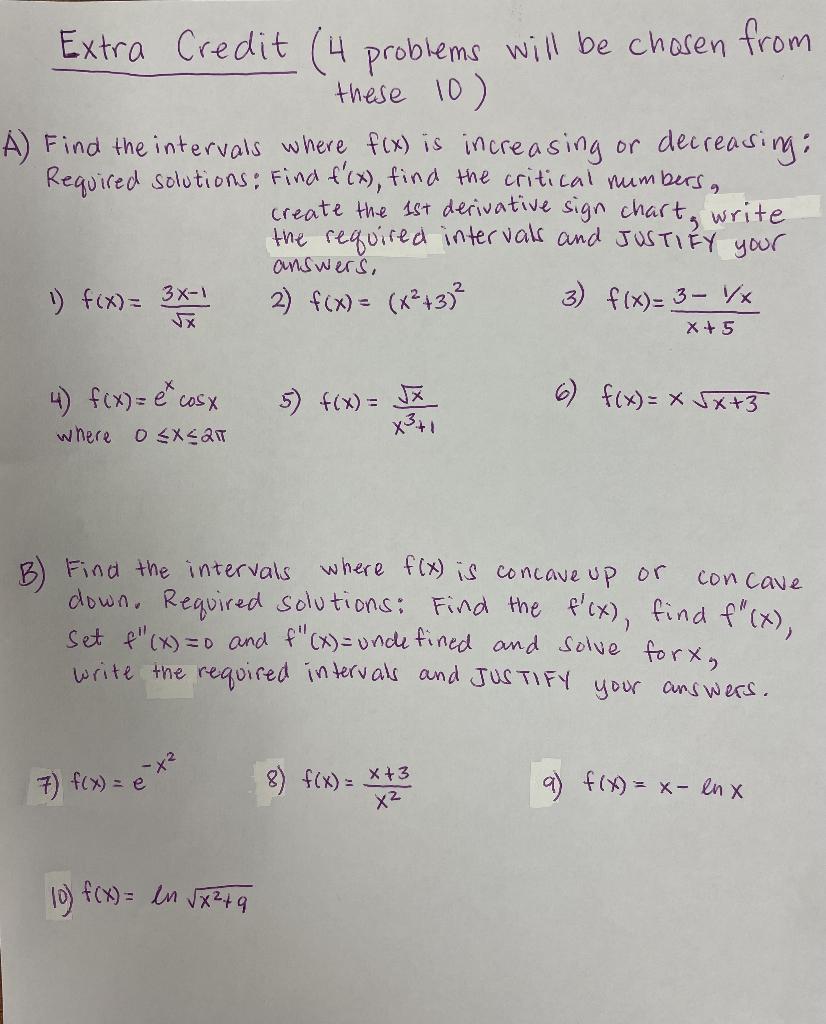 Extra Credit (4 problems will be chosen from
these 10)
A) Find the intervals where f(x) is increasing or decreasing:
Required solutions: Find f'(x), find the critical numbers,
create the 1st derivative sign chart, write
the required intervals and JUSTIFY your
answers.
1) f(x) = (3x-1)/√x 2) f(x) = (x²+3)² 3) f(x) = (3 - 1/x)/(x+5)
4) f(x) = eˣ cosx 5) f(x) = √x/(x³+1) 6) f(x) = x √(x+3)
where 0 ≤ x ≤ 2π
B) Find the intervals where f(x) is concave up or concave
down. Required solutions: Find the f'(x), find f"(x),
set f"(x)=0 and f"(x)=undefined and solve for x,
write the required intervals and JUSTIFY your answers.
7) f(x) = e^(-x²) 8) f(x) = (x+3)/x² 9) f(x) = x - ln x
10) f(x) = ln √(x²+9)